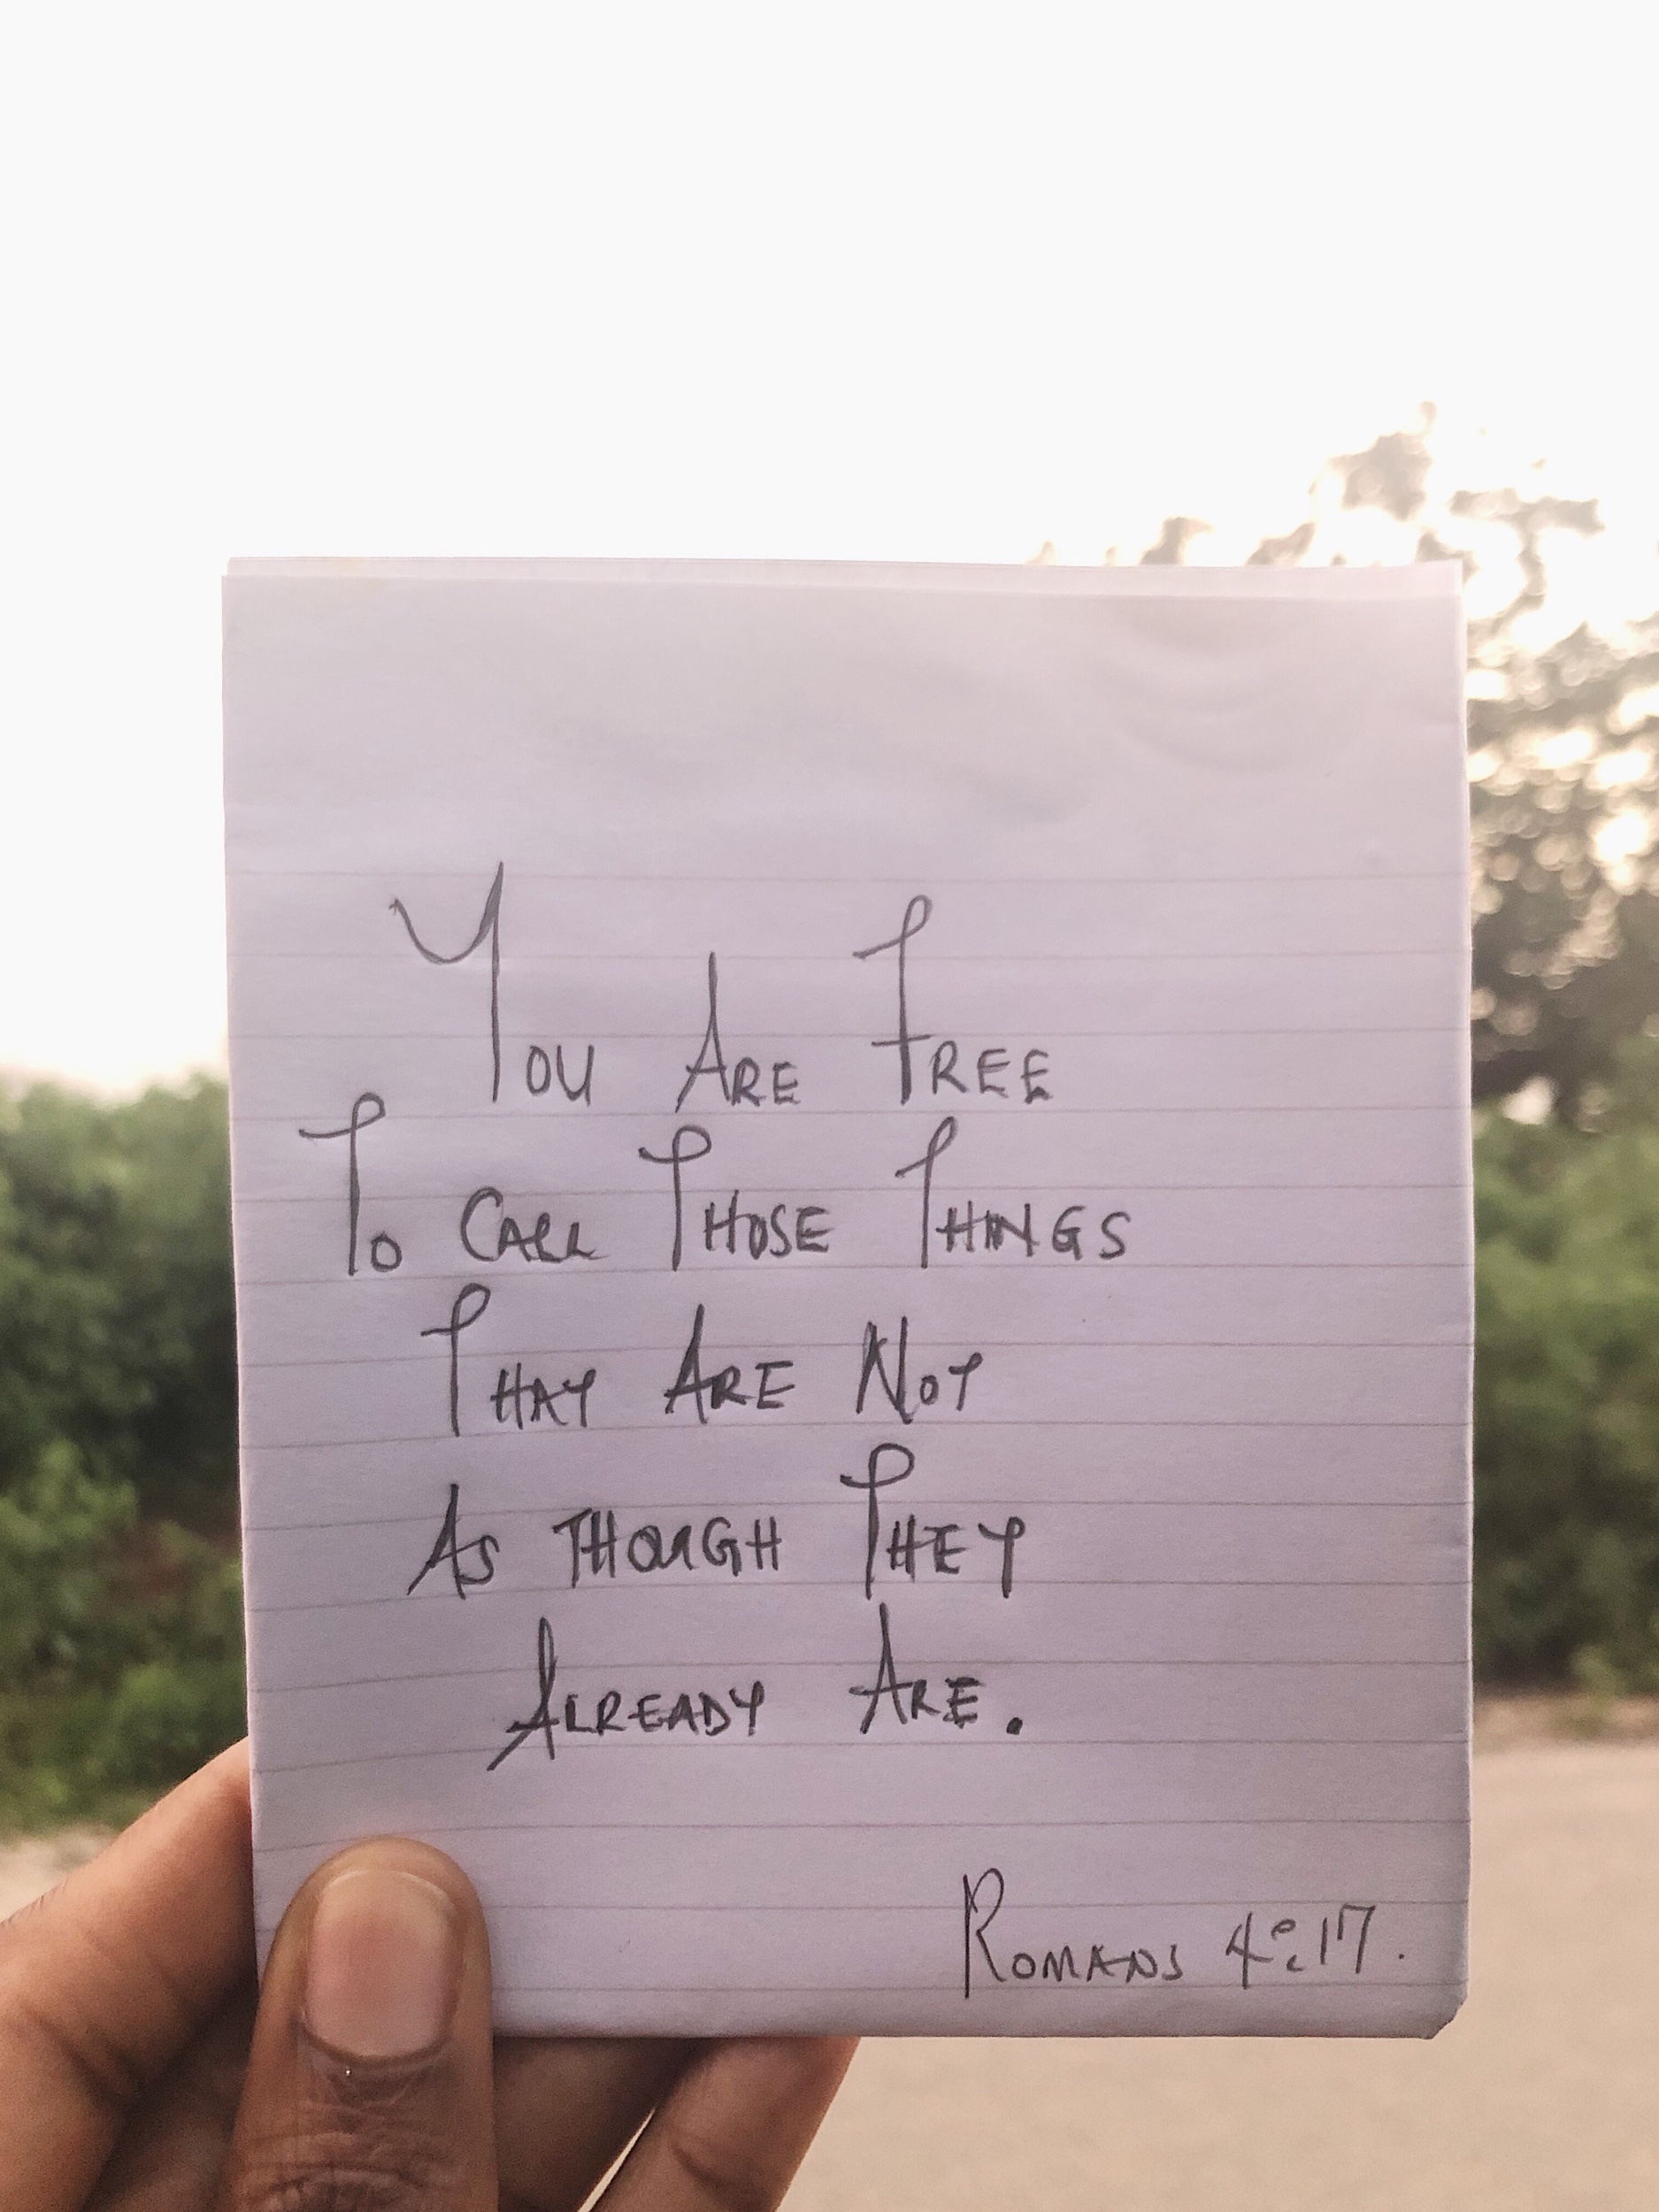 You Are Free
To Call Those Things
That Are Not
As though They
Already Are.
Romans 4:17.